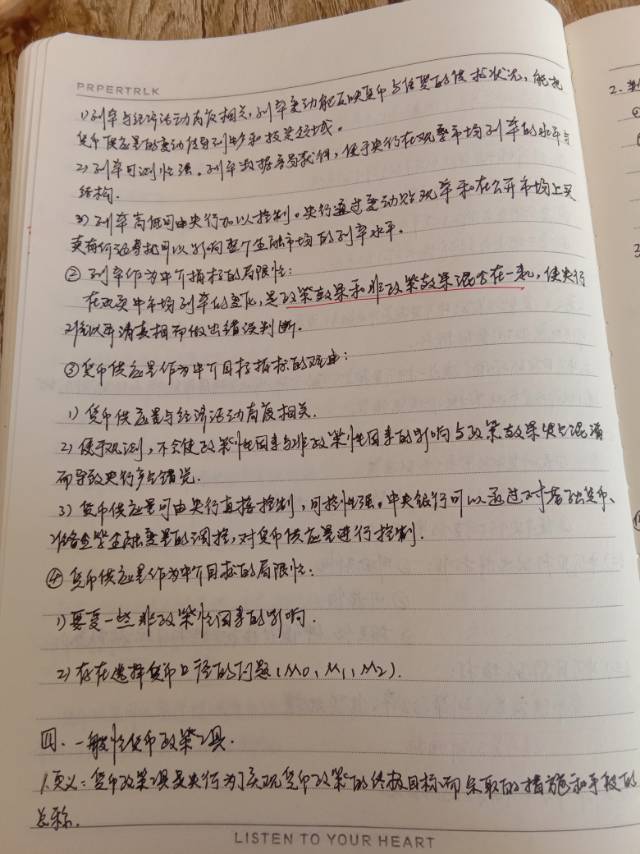 PRPERTRLK
1) 利率与经济活动高度相关,利率变动能反映货币与信贷的供求状况,能把
货币供应量的变动传导到投资领域。
2) 利率可测性强。利率数据容易获得,便于央行在观察市场利率的水平与
结构。
3) 利率高低可由央行加以控制。央行通过变动贴现率和在公开市场上买
卖有价证券就可以影响整个金融市场的利率水平。
② 利率作为中介指标的局限性:
在现实中市场利率的变化,是政策效果和非政策效果混合在一起,使央行
难以弄清真相而做出错误判断。
③货币供应量作为中介目标指标的理由:
1) 货币供应量与经济活动高度相关.
2) 便于观测,不会使政策性因素与非政策性因素的影响与政策效果发生混淆
而导致央行产生错觉.
3) 货币供应量可由央行直接控制,可控性强。中央银行可以通过对基础货币、
准备金等金融变量的调控,对货币供应量进行控制.
④ 货币供应量作为中介目标的局限性:
1) 要受一些非政策性因素的影响.
2) 存在选择货币口径的问题(M0, M1, M2).
四、一般性货币政策工具.
1.定义:货币政策工具是央行为了实现货币政策的终极目标而采取的措施和手段的
总称.
LISTEN TO YOUR HEART
2.